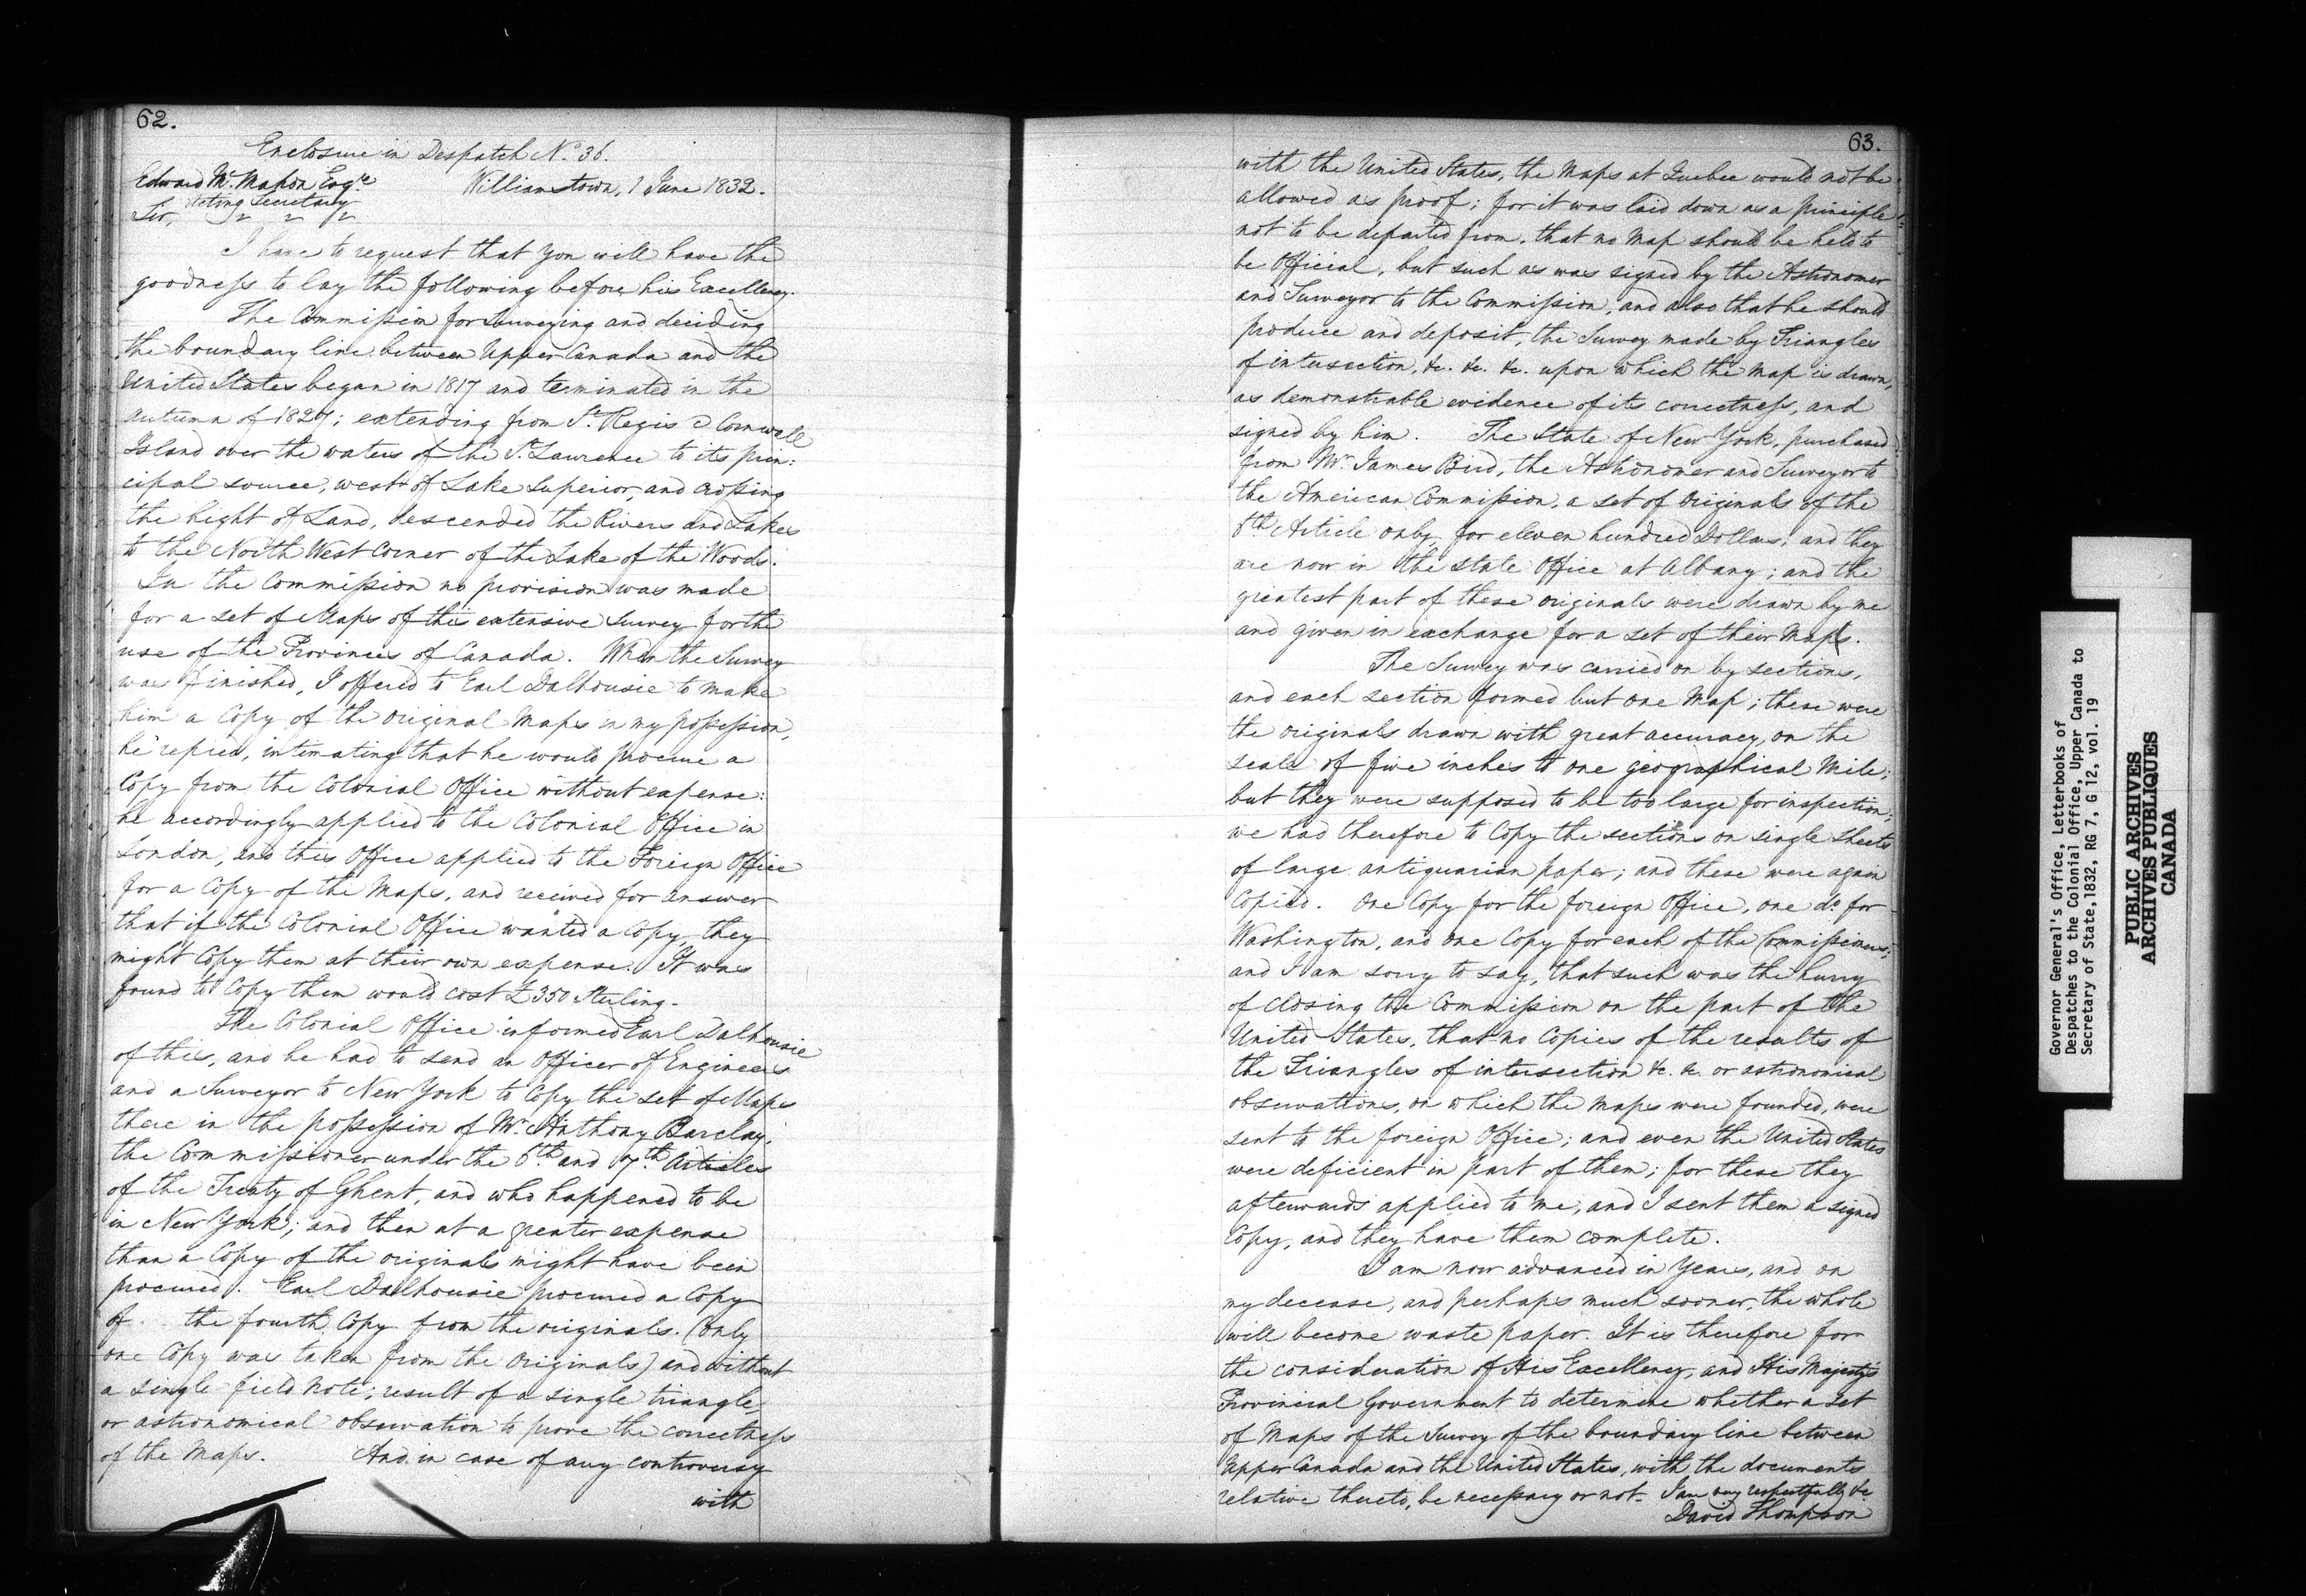 62.
Enclosure in Despatch No. 36.
Edward Mc. Mahon Esqre
Williamstown, 1 June 1832.
Acting Secretary
Sir,
I have to request that you will have the
goodness to lay the following before his Excellency.
The Commission for Surveying and deciding
the boundary line between Upper Canada and the
United States began in 1817 and terminated in the
autumn of 1827; extending from St. Regis & Cornwall
Island over the waters of the St. Lawrence to its prin:
cipal source, west of Lake Superior, and crossing
the hight of Land, descended the Rivers and Lakes
to the North West Corner of the Lake of the Woods.
In the Commission no provision was made
for a set of Maps of this extensive Survey for the
use of the Provinces of Canada. When the Survey
was finished, I offered to Earl Dalhousie to make
him a Copy of the original Maps in my possession,
he repied, intimating that he would procure a
Copy from the Colonial Office without expense:
he accordingly applied to the Colonial Office in
London, and this Office applied to the Foreign Office
for a Copy of the Maps, and received for answer
that if the Colonial Office wanted a Copy, they
might Copy them at their own expense. It was
found to Copy them would cost £350 Sterling.
The Colonial Office informed Earl Dalhousie
of this, and he had to send an Officer of Engineers
and a Surveyor to New York to Copy the set of Maps
there in the possession of Mr. Anthony Barclay,
the Commissioner under the 6th and 7th Articles
of the Treaty of Ghent, and who happened to be
in New York; and then at a greater expense
than a Copy of the originals might have been
procured. Earl Dalhousie procured a Copy
of the fourth Copy from the originals. (only
one Copy was taken from the originals) and without
a single field note; result of a single triangle,
or astronomical observation to prove the correctness
of the Maps. And in case of any controversy
with
63.
with the United States, the Maps at Quebec would not be
allowed as proof; for it was laid down as a principle
not to be departed from, that no Map should be held to
be Official, but such as was signed by the Astronomer
and Surveyor to the Commission, and also that he should
produce and deposit, the Survey made by Triangles
of intersection, &c. &c. &c. upon which the Map is drawn,
as demonstrable evidence of its correctness, and
signed by him. The State of New York, purchased
from Mr. James Bird, the Astronomer and Surveyor to
the American Commission, a set of Originals of the
6th Article only, for eleven hundred Dollars; and they
are now in the State Office at Albany; and the
greatest part of these originals were drawn by me
and given in exchange for a set of their Maps.
The Survey was carried on by sections,
and each section formed but one Map; these were
the originals drawn with great accuracy, on the
scale of five inches to one geographical Mile;
but they were supposed to be too large for inspection,
we had therefore to Copy the sections on single sheets
of large antiquarian paper; and these were again
Copied. One Copy for the foreign Office, one do. for
Washington, and one Copy for each of the Commissioners;
and I am sorry to say, that such was the hurry
of closing the Commission on the part of the
United States, that no Copies of the results of
the Triangles of intersection &c. &c. or astronomical
observations, on which the Maps were founded, were
sent to the foreign Office; and even the United States
were deficient in part of them; for these they
afterwards applied to me, and I sent them a signed
Copy, and they have them complete.
I am now advanced in Years, and on
my decease, and perhaps much sooner, the whole
will become waste paper. It is therefore for
the consideration of His Excellency, and His Majesty's
Provincial Government to determine whether a set
of Maps of the Survey of the boundary line between
Upper Canada and the United States, with the documents
relative thereto, be necessary or not. I am very respectfully &c
David Thompson
Governor General's Office, Letterbooks of
Despatches to the Colonial Office, Upper Canada to
Secretary of State, 1832, RG 7, G 12, vol. 19
PUBLIC ARCHIVES
ARCHIVES PUBLIQUES
CANADA